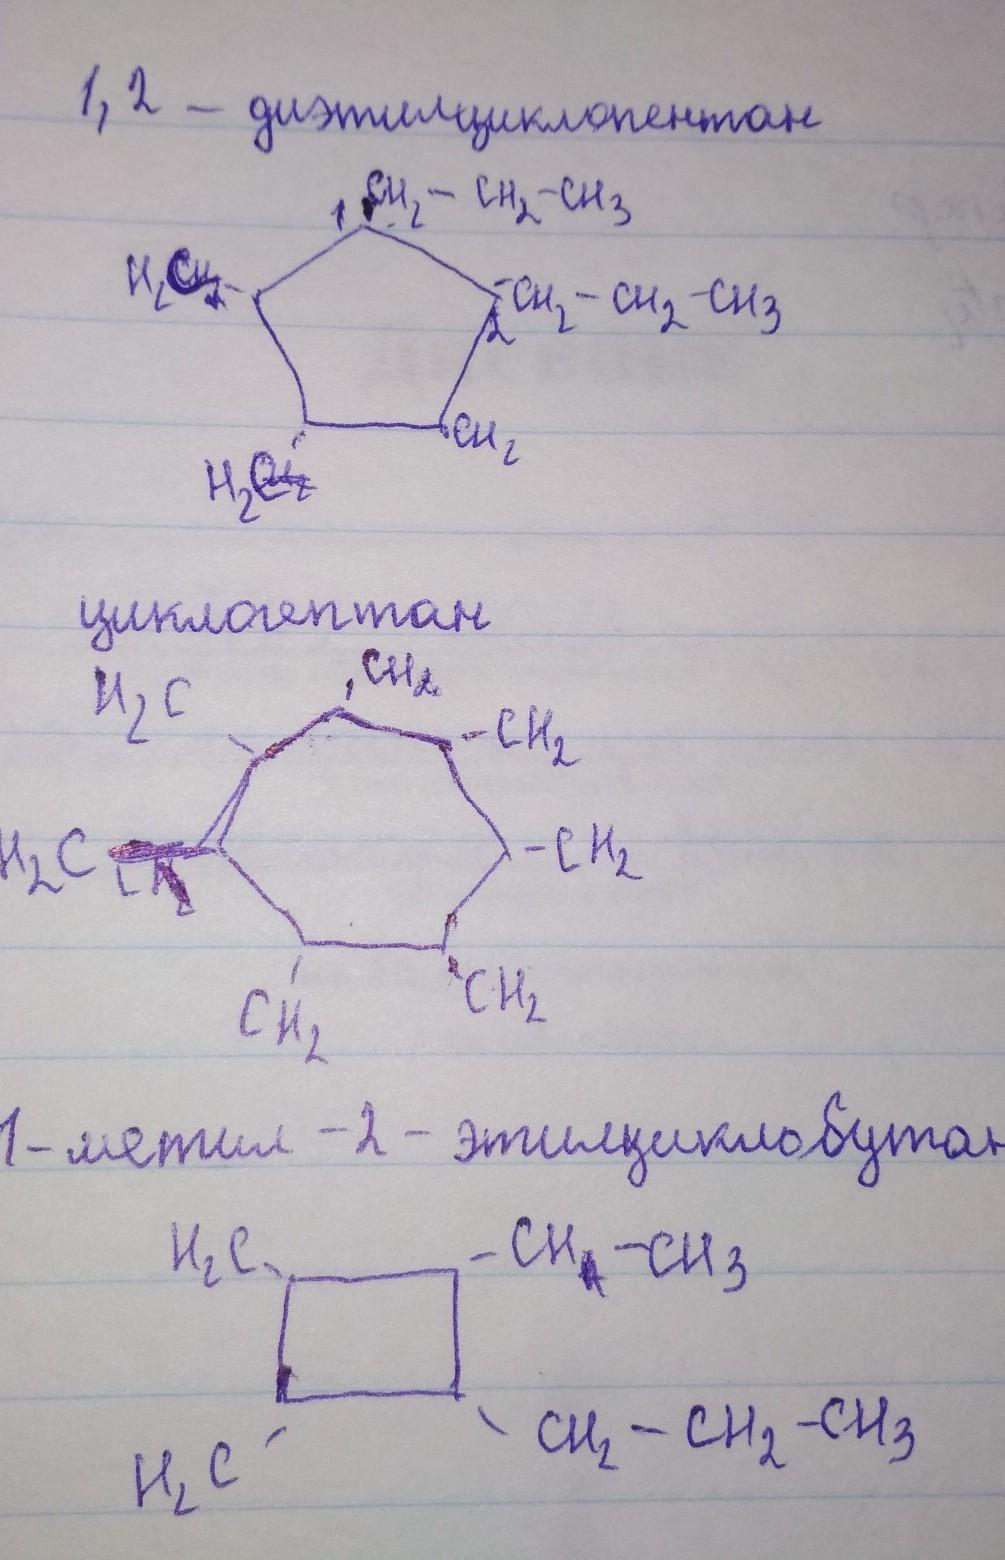 1,2 - диэтилциклопентан
CH2 - CH2 - CH3
1
H2C
- CH2 - CH2 - CH3
2
CH2
H2C
циклогептан
CH2
H2C
- CH2
H2C
- CH2
CH2
CH2
1-метил - 2 - этилциклобутан
H2C
- CH - CH3
H2C
CH2 - CH2 - CH3